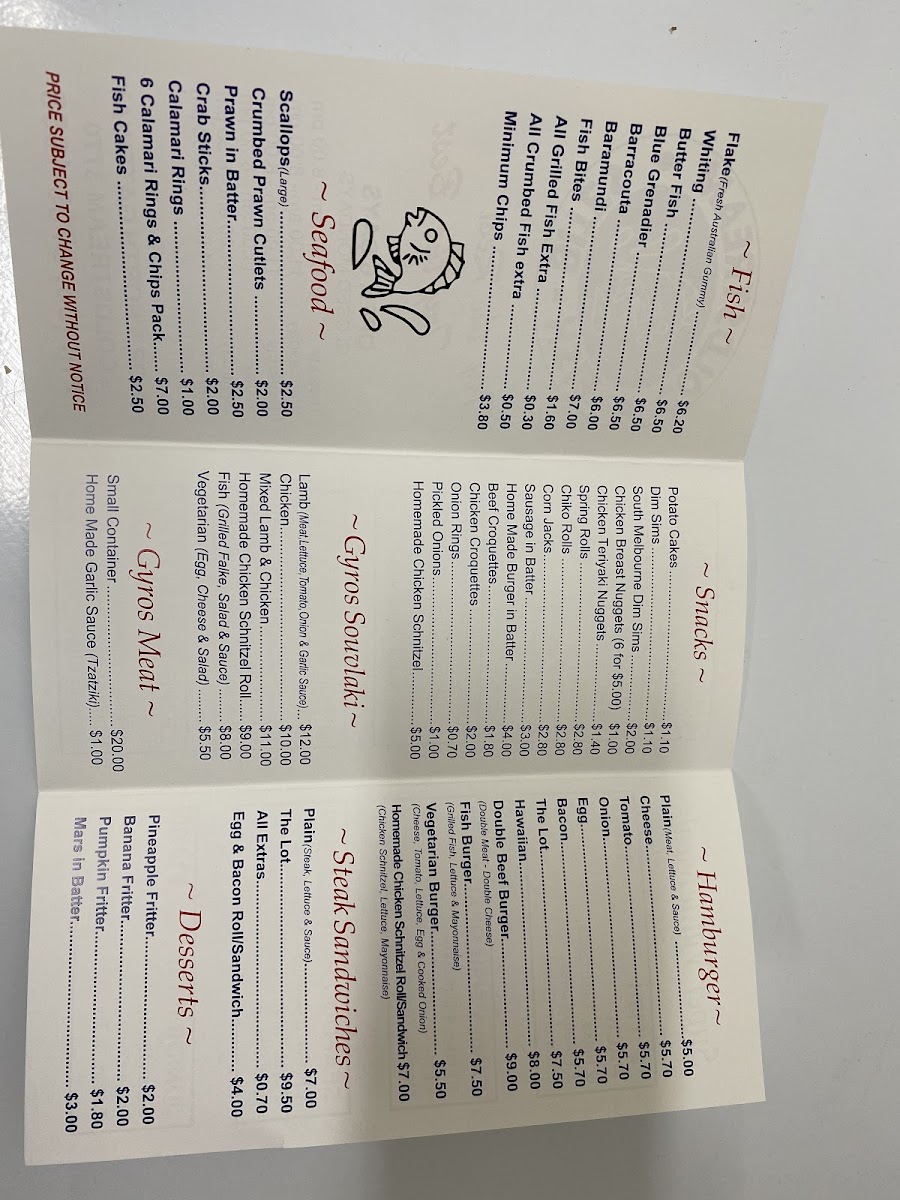 ~ Fish ~
Flake (Fresh Australian Gummy) ........ $6.20
Whiting ........ $6.50
Butter Fish ........ $6.50
Blue Grenadier ........ $6.50
Barracouta ........ $6.00
Baramundi ........ $7.00
Fish Bites ........ $1.60
All Grilled Fish Extra ........ $0.30
All Crumbed Fish extra ........ $0.50
Minimum Chips ........ $3.80
~ Seafood ~
Scallops (Large) ........ $2.50
Crumbed Prawn Cutlets ........ $2.00
Prawn in Batter ........ $2.50
Crab Sticks ........ $2.00
Calamari Rings ........ $1.00
6 Calamari Rings & Chips Pack ........ $7.00
Fish Cakes ........ $2.50
PRICE SUBJECT TO CHANGE WITHOUT NOTICE
~ Snacks ~
Potato Cakes ........ $1.10
Dim Sims ........ $1.10
South Melbourne Dim Sims ........ $2.00
Chicken Breast Nuggets (6 for $5.00) $1.00
Chicken Teriyaki Nuggets ........ $1.40
Spring Rolls ........ $2.80
Chiko Rolls ........ $2.80
Corn Jacks ........ $2.80
Sausage in Batter ........ $3.00
Home Made Burger in Batter ........ $4.00
Beef Croquettes ........ $1.80
Chicken Croquettes ........ $2.00
Onion Rings ........ $0.70
Pickled Onions ........ $1.00
Homemade Chicken Schnitzel ........ $5.00
~ Gyros Souvlaki ~
Lamb (Meat, Lettuce, Tomato, Onion & Garlic Sauce) ... $12.00
Chicken ........ $10.00
Mixed Lamb & Chicken ........ $11.00
Homemade Chicken Schnitzel Roll ........ $9.00
Fish (Grilled Falke, Salad & Sauce) ........ $8.00
Vegetarian (Egg, Cheese & Salad) ........ $5.50
~ Gyros Meat ~
Small Container ........ $20.00
Home Made Garlic Sauce (Tzatziki) .... $1.00
~ Hamburger ~
Plain (Meat, Lettuce & Sauce) ........ $5.00
Cheese ........ $5.70
Tomato ........ $5.70
Onion ........ $5.70
Egg ........ $5.70
Bacon ........ $5.70
The Lot ........ $7.50
Hawaiian ........ $8.00
Double Beef Burger ........ $9.00
(Double Meat - Double Cheese)
Fish Burger ........ $7.50
(Grilled Fish, Lettuce & Mayonnaise)
Vegetarian Burger ........ $5.50
(Cheese, Tomato, Lettuce, Egg & Cooked Onion)
Homemade Chicken Schnitzel Roll/Sandwich $7.00
(Chicken Schnitzel, Lettuce, Mayonnaise)
~ Steak Sandwiches ~
Plain (Steak, Lettuce & Sauce) ........ $7.00
The Lot ........ $9.50
All Extras ........ $0.70
Egg & Bacon Roll/Sandwich ........ $4.00
~ Desserts ~
Pineapple Fritter ........ $2.00
Banana Fritter ........ $2.00
Pumpkin Fritter ........ $1.80
Mars in Batter ........ $3.00